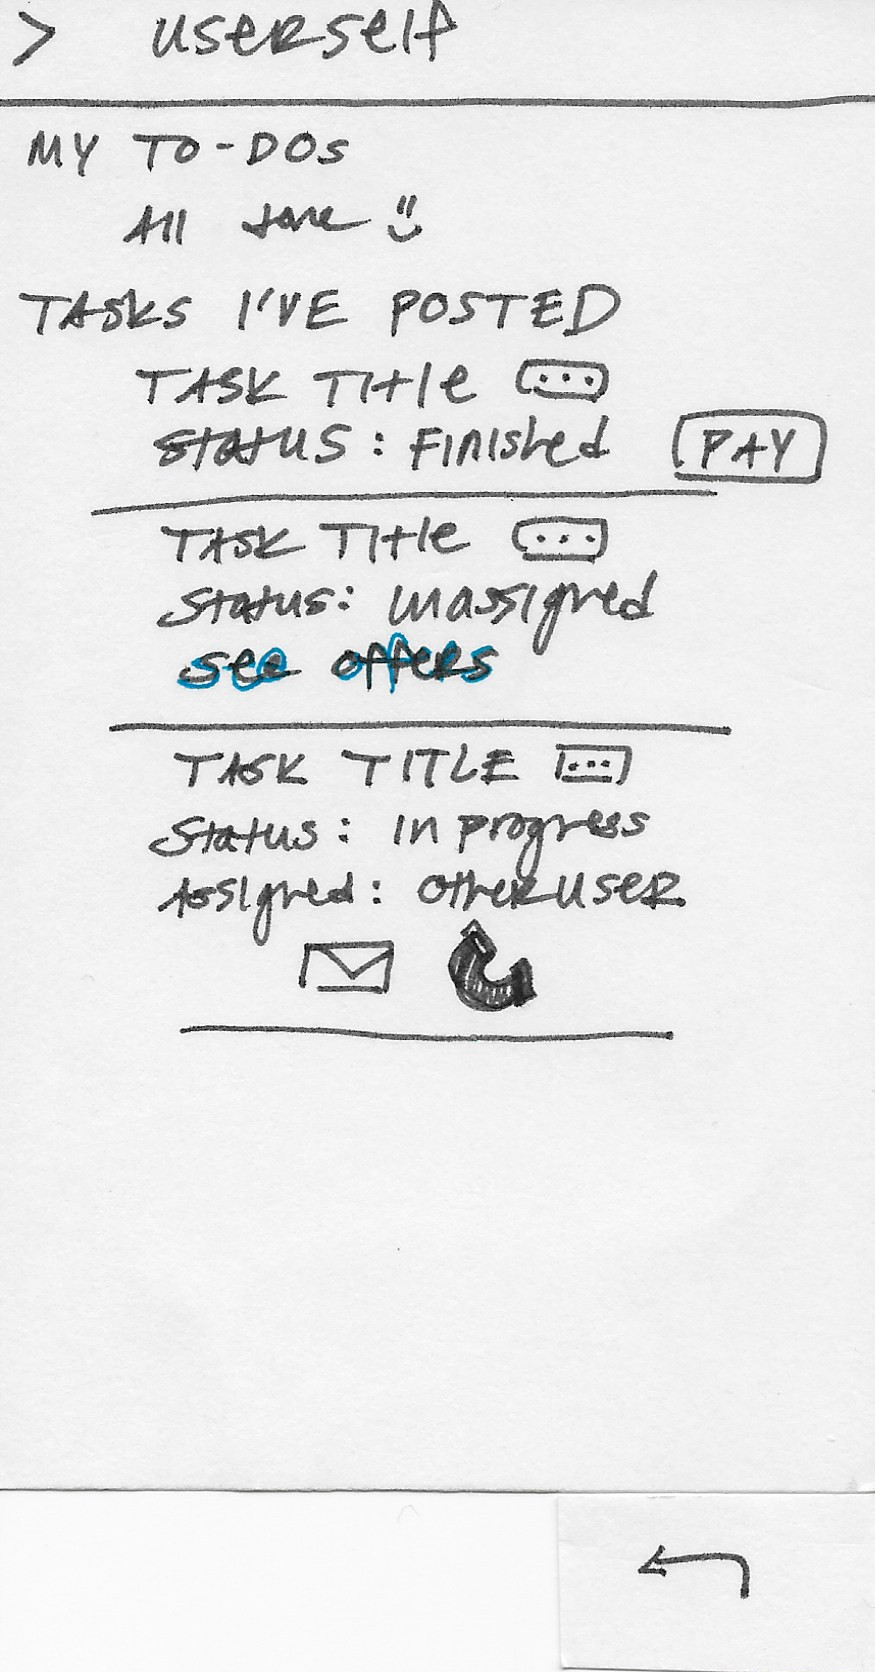 > userself
MY TO-DOs
All done
TASKS I'VE POSTED
TASK Title ...
Status: Finished PAY
TASK Title ...
Status: unassigned
see offers
TASK TITLE ...
Status: in progress
Assigned: otheruser